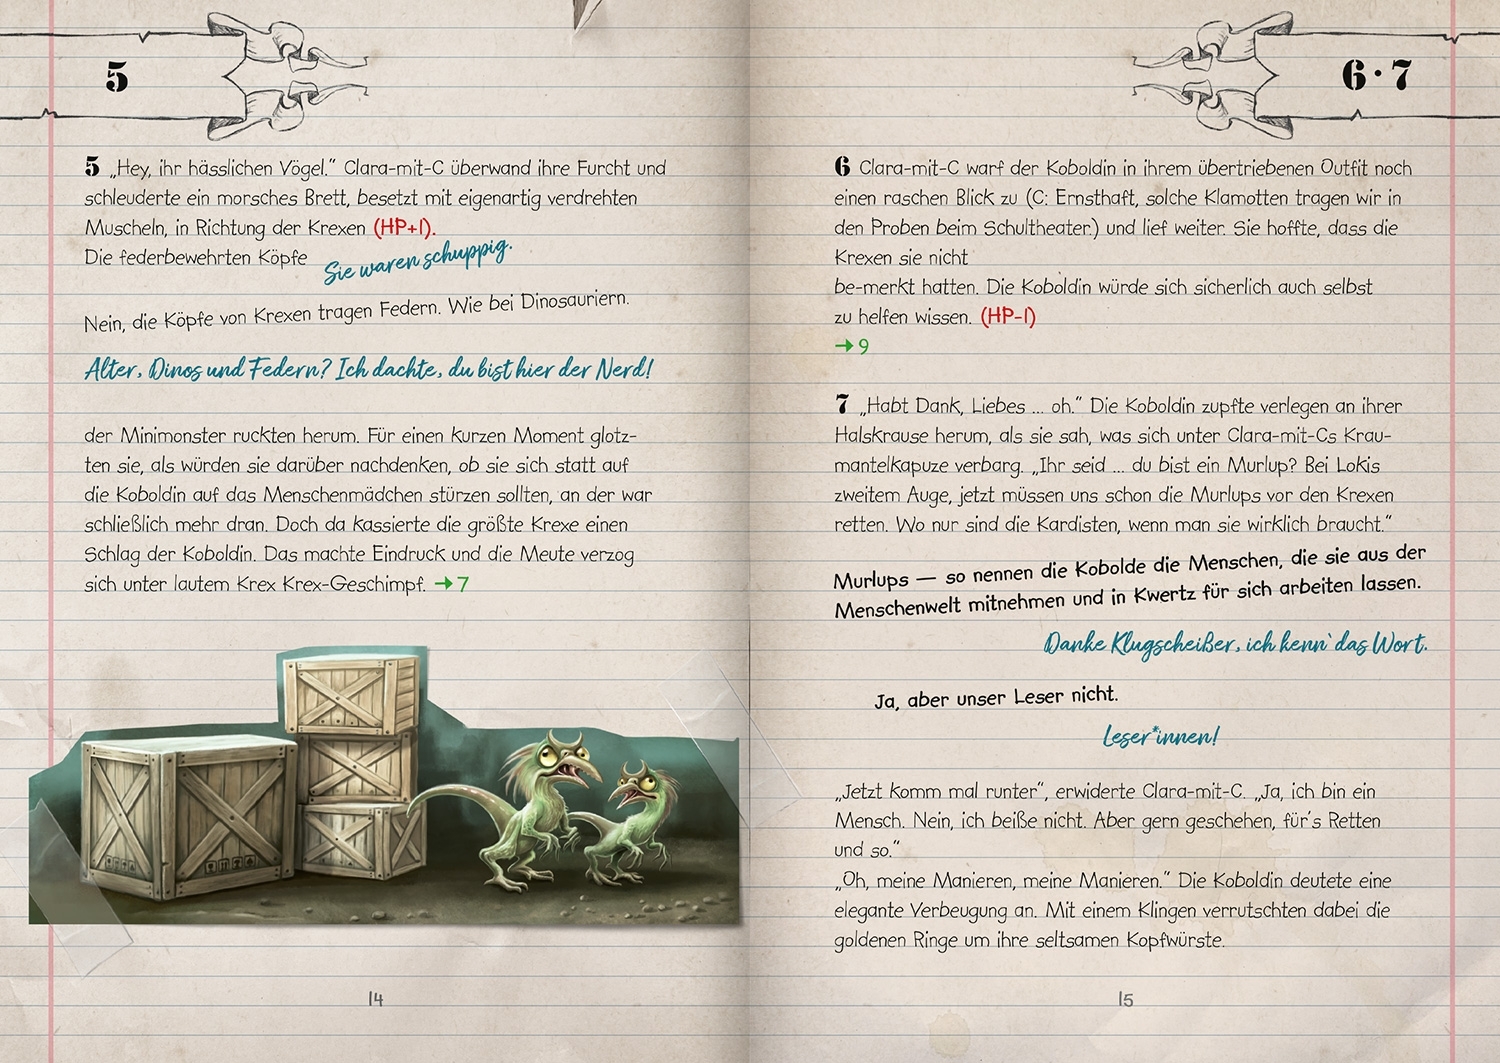 5
5 „Hey, ihr hässlichen Vögel.“ Clara-mit-C überwand ihre Furcht und
schleuderte ein morsches Brett, besetzt mit eigenartig verdrehten
Muscheln, in Richtung der Krexen (HP+1).
Die federbewehrten Köpfe
Sie waren schuppig.
Nein, die Köpfe von Krexen tragen Federn. Wie bei Dinosauriern.
Alter, Dinos und Federn? Ich dachte, du bist hier der Nerd!
der Minimonster ruckten herum. Für einen kurzen Moment glotz-
ten sie, als würden sie darüber nachdenken, ob sie sich statt auf
die Koboldin auf das Menschenmädchen stürzen sollten, an der war
schließlich mehr dran. Doch da kassierte die größte Krexe einen
Schlag der Koboldin. Das machte Eindruck und die Meute verzog
sich unter lautem Krex Krex-Geschimpf. → 7
14
6 · 7
6 Clara-mit-C warf der Koboldin in ihrem übertriebenen Outfit noch
einen raschen Blick zu (C: Ernsthaft, solche Klamotten tragen wir in
den Proben beim Schultheater.) und lief weiter. Sie hoffte, dass die
Krexen sie nicht
be-merkt hatten. Die Koboldin würde sich sicherlich auch selbst
zu helfen wissen. (HP-1)
→ 9
7 „Habt Dank, Liebes ... oh.“ Die Koboldin zupfte verlegen an ihrer
Halskrause herum, als sie sah, was sich unter Clara-mit-Cs Krau-
mantelkapuze verbarg. „Ihr seid ... du bist ein Murlup? Bei Lokis
zweitem Auge, jetzt müssen uns schon die Murlups vor den Krexen
retten. Wo nur sind die Kardisten, wenn man sie wirklich braucht.“
Murlups — so nennen die Kobolde die Menschen, die sie aus der
Menschenwelt mitnehmen und in Kwertz für sich arbeiten lassen.
Danke Klugscheißer, ich kenn` das Wort.
Ja, aber unser Leser nicht.
Leser*innen!
„Jetzt komm mal runter“, erwiderte Clara-mit-C. „Ja, ich bin ein
Mensch. Nein, ich beiße nicht. Aber gern geschehen, für's Retten
und so.“
„Oh, meine Manieren, meine Manieren.“ Die Koboldin deutete eine
elegante Verbeugung an. Mit einem Klingen verrutschten dabei die
goldenen Ringe um ihre seltsamen Kopfwürste.
15